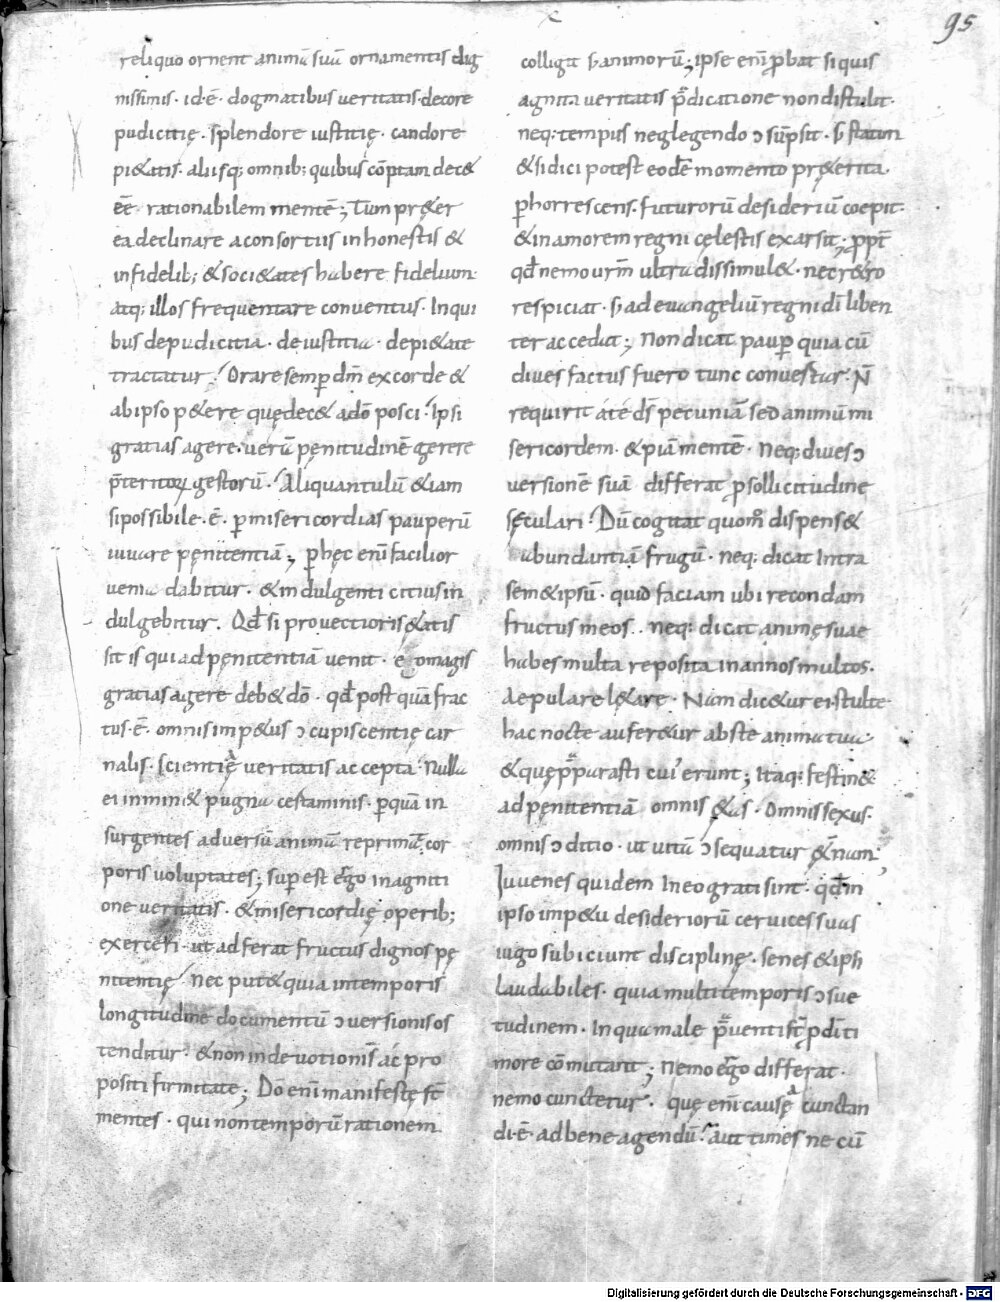 95
reliquo ornent animū suū ornamentis dig
nissimis · id·ē· dogmatibus veritatis · decore
pudicitię · splendore iustitię · candore
pi&atis · aliisq; omnib; quibus cōptam dec&
ēē rationabilem mentē; Tum pr&er
ea declinare a consortiis inhonestis &
infidelib; & soci&ates habere fidelium
atq; illos frequentare conventus · In qui
bus de pudicitia · de iustitia · de pi&ate
tractatur · Orare semp dm̄ ex corde &
ab ipso p&ere quę dec& a dō posci · Ipsi
gratias agere · verū pęnitudinē gerere
p̄teritoꝝ gestorū · Aliquantulū &iam
si possibile · ē · ꝑ misericordias pauperū
iuvare pęnitentiā; ꝑ hęc enī facilior
venia dabitur · & indulgenti citius in
dulgebitur · Qd̄ si provectioris ę&atis
sit is qui ad pęnitentiā venit · eo magis
gratias agere deb& dō · qd̄ post quā frac
tus · ē · omnis imp&us ɔcupiscentię car
nalis · scientię veritatis accepta · Nulla
ei inmin& pugna certaminis · ꝑ quā in
surgentes adversū animū reprimat cor
poris voluptates; supest ergo in agniti
one veritatis · & misericordię operib;
exerceri · ut adferat fructus dignos pę
nitentię · Nec put& quia in temporis
longitudine documentū ɔversionis os
tenditur · & non in devotionis ac pro
positi firmitate; Dō enī manifestę st̄
mentes · qui non temporū rationem
colligit s; animorū; ipse enī ꝓbat si quis
agnita veritatis p̄dicatione non distulit ·
neq; tempus neglegendo ɔsūpsit · s; statim
& si dici potest eodē momento pr&erita
ꝑhorrescens · futurorū desideriū coepit ·
& in amorem regni cęlestis exarsit · ꝓpt̄
qd̄ nemo vr̄m ultra dissimul& · nec r&ro
respiciat · s; ad evangeliū regni dī liben
ter accedat; Non dicat paup quia cū
dives factus fuero tunc convertar · N̄
requirit a te ds̄ pecuniā sed animū mi
sericordem · & piā mentē · Neq; dives ɔ
versionē suā differat ꝓ sollicitudine
sęculari · Dū cogitat quom̊ dispens&
abundantiā frugū · neq; dicat intra
sem&ipsū · quid faciam ubi recondam
fructus meos · neq; dicat animę suae
habes multa reposita in annos multos ·
Aepulare l&are · Nam dic&ur ei · stulte
hac nocte aufer&ur abs te anima tua
& quę p̄parasti cui erunt; Itaq; festin&
ad pęnitentiā omnis ę&as · Omnis sexus ·
omnis ɔditio · ut vitā ɔsequatur ę&nam;
Iuvenes quidem in eo grati sint · qd̄ in
ipso imp&u desideriorū cervices suas
iugo subiciunt disciplinę · senes & ipsi
laudabiles · quia multi temporis ɔsue
tudinem · In qua male p̄venti st̄
more cōmutant; Nemo ergo differat ·
nemo cunctetur · quę enī causę cunctan
di · ē · ad bene agendū · aut times ne cū
Digitalisierung gefördert durch die Deutsche Forschungsgemeinschaft - DFG